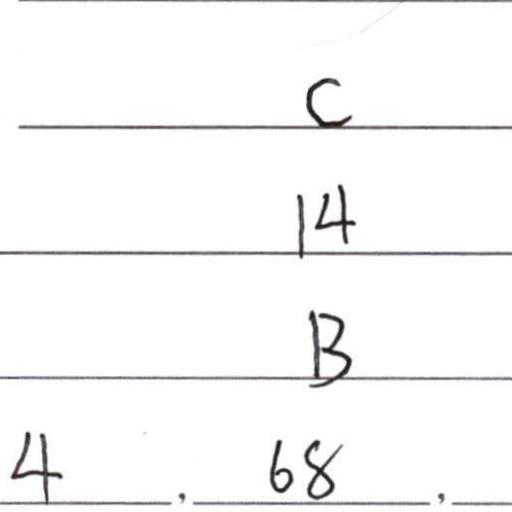 C
14
B
4 , 68 ,